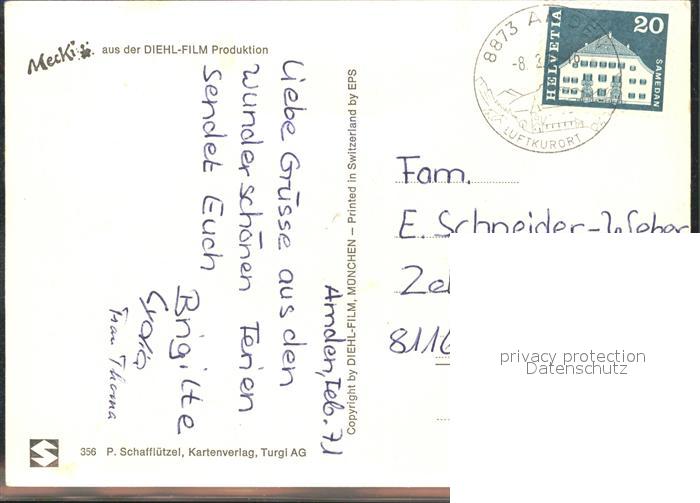 Mecki
aus der DIEHL-FILM Produktion
8873 AMDEN
-8. 2
LUFTKURORT
HELVETIA
20
SAMEDAN
Amden, Feb. 71
Liebe Grüsse aus den
wunderschönen Ferien
sendet Euch
Brigitte
Frau Thoma
Copyright by DIEHL-FILM, MÜNCHEN – Printed in Switzerland by EPS
Fam.
E. Schneider-Weber
8116
privacy protection
Datenschutz
356 P. Schafflützel, Kartenverlag, Turgi AG